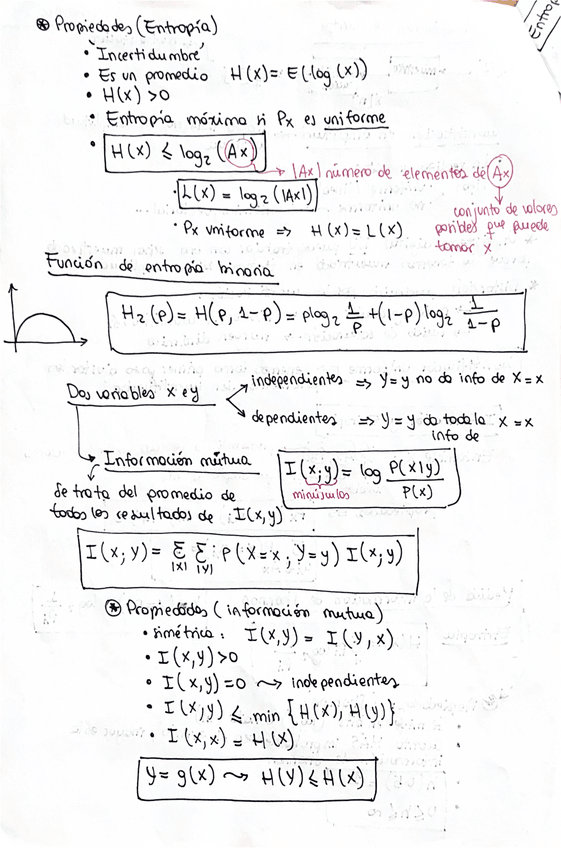 Entrop
⊛ Propiedades (Entropía)
• 'Incertidumbre'
• Es un promedio H(x) = E(log(x))
• H(x) > 0
• Entropía máxima si Px es uniforme
• H(x) ≤ log₂ (Ax)
→ |Ax| número de elementos de Ax
• L(x) = log₂ (|Ax|)
conjunto de valores
posibles que puede
tomar x
• Px uniforme ⇒ H(x) = L(x)
Función de entropía binaria
H₂(p) = H(p, 1-p) = p log₂ 1/p + (1-p) log₂ 1/1-p
Dos variables x e y
independientes ⇒ Y=y no da info de X=x
dependientes ⇒ Y=y da toda la X=x
info de
Información mútua
I(x;y) = log P(x|y)/P(x)
minúsculas
Se trata del promedio de
todos los resultados de I(x,y)
I(x;y) = Σ|x| Σ|y| P(X=x; Y=y) I(x;y)
⊛ Propiedades (información mutua)
• simétrica: I(x,y) = I(y,x)
• I(x,y) > 0
• I(x,y) = 0 ⤳ independientes
• I(x,y) ≤ min {H(x), H(y)}
• I(x,x) = H(x)
y = g(x) ⤳ H(y) ≤ H(x)